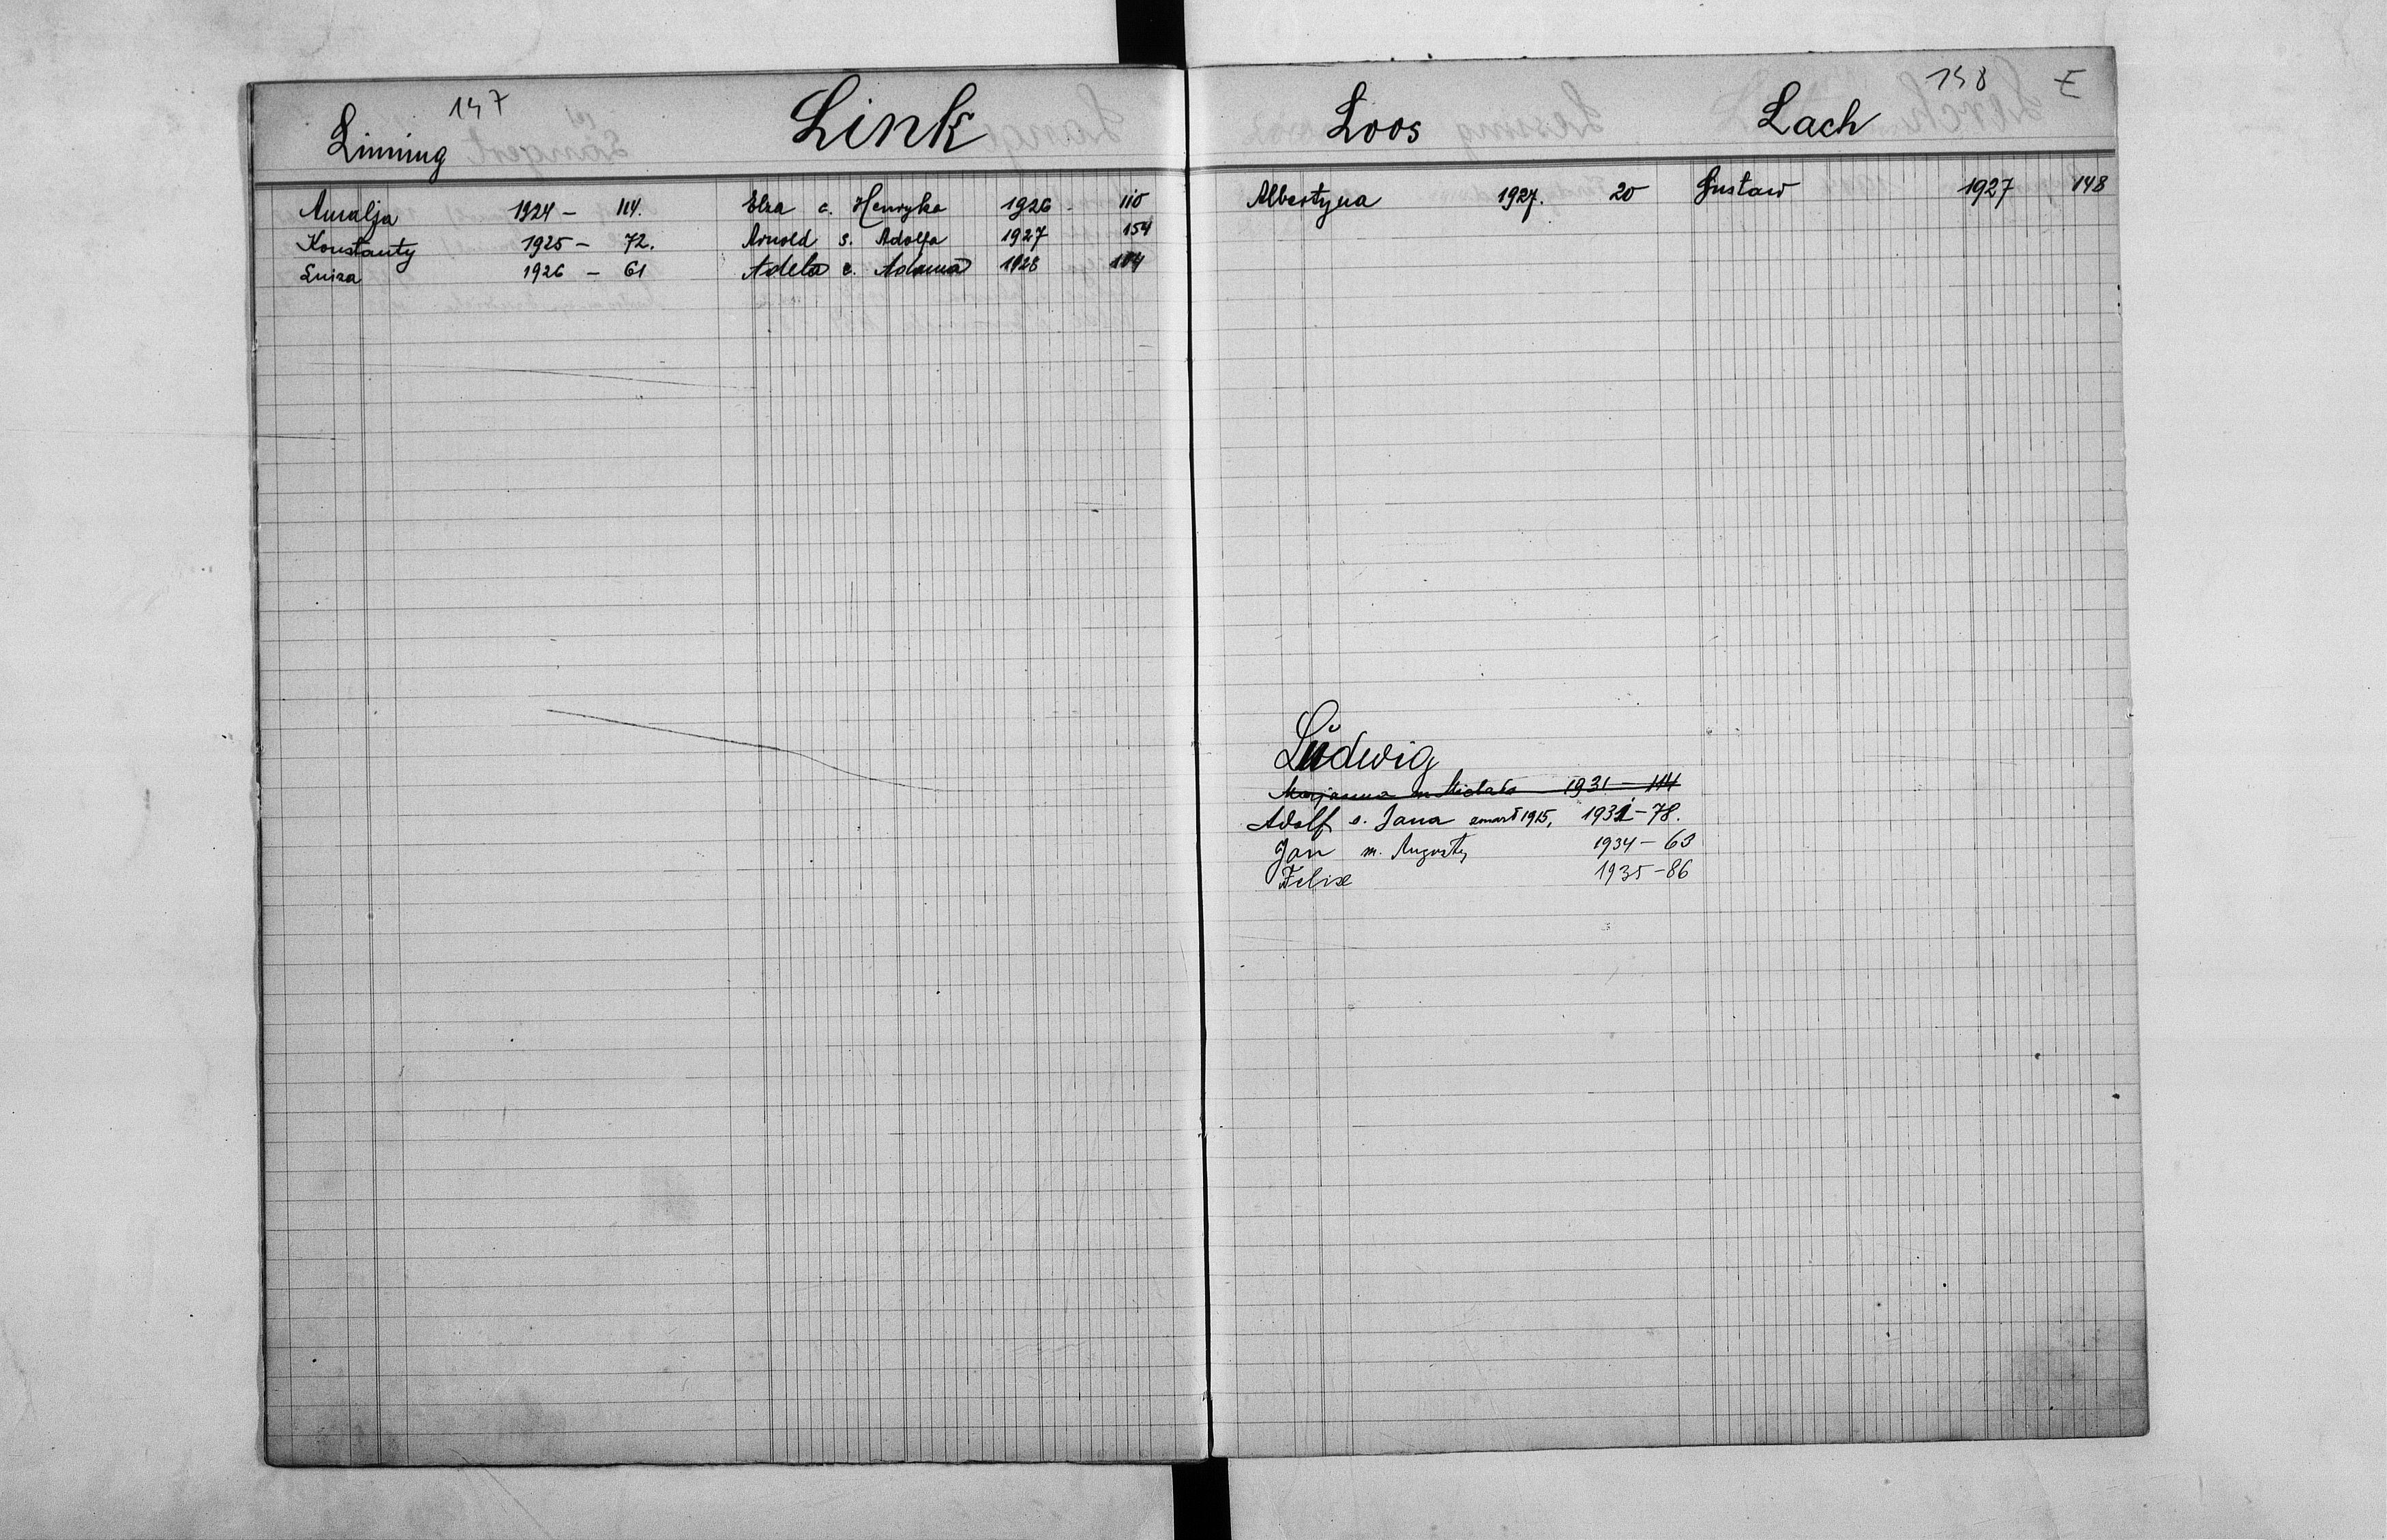 147
Linning
Amalja 1924 – 114.
Konstanty 1925 – 72.
Luiza 1926 – 61
Link
Elza c. Henryka 1926 – 110
Arnold s. Adolfa 1927 154
Adela c. Adama 1928 184
148
Loos
Albertyna 1927. 20
Lach
Gustaw 1927 148
Lüdwig
Marjanna m Michała 1931 – 114
Adolf s. Jana zmarł 1915, 1931 – 78.
Jan m. Augusty 1934 – 63
Felix 1935 – 86